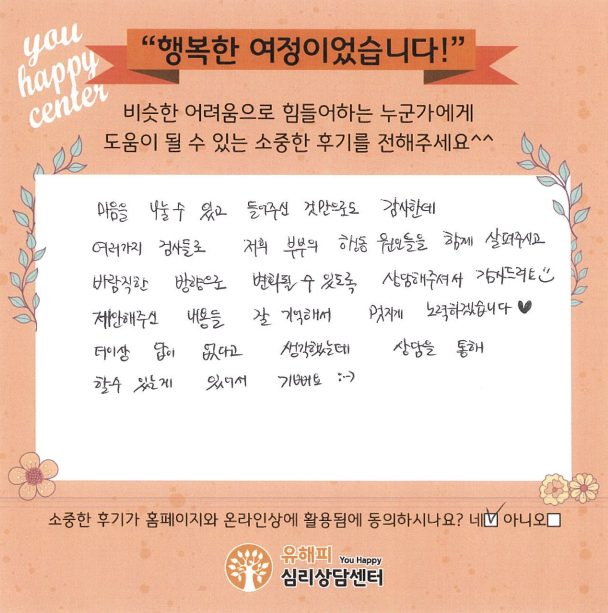 you
happy
center
“행복한 여정이었습니다!”
비슷한 어려움으로 힘들어하는 누군가에게
도움이 될 수 있는 소중한 후기를 전해주세요^^
마음을 나눌 수 있고 들어주신 것만으로도 감사한데
여러가지 검사들로 저희 부부의 행동 원인들을 함께 살펴주시고
바람직한 방향으로 변화될 수 있도록 상담해주셔서 감사드려요
제안해주신 내용들 잘 기억해서 멋지게 노력하겠습니다 ♥
더이상 답이 없다고 생각했는데 상담을 통해
할수 있는게 있어서 기뻐요 :-)
소중한 후기가 홈페이지와 온라인상에 활용됨에 동의하시나요? 네☑ 아니오☐
유해피 You Happy
심리상담센터